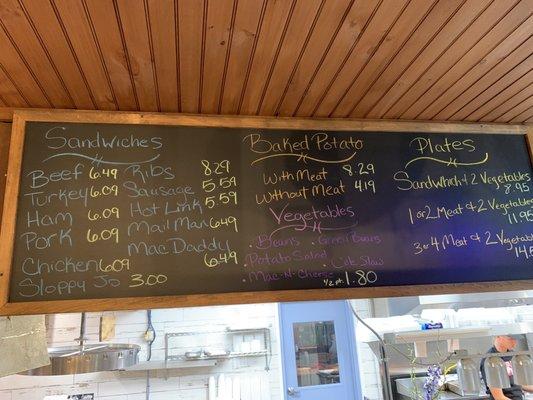 Sandwiches
Beef 6.49
Turkey 6.09
Ham 6.09
Pork 6.09
Chicken 6.09
Sloppy Jo 3.00
Ribs 8.29
Sausage 5.59
Hot Link 5.59
Mail Man 6.49
Mac Daddy 6.49
Baked Potato
With Meat 8.29
Without Meat 4.19
Vegetables
. Beans . Green Beans
. Potato Salad . Cole Slaw
. Mac-N-Cheese
1/2 pt. 1.80
Plates
Sandwhich & 2 Vegetables
8.95
1 or 2 Meat & 2 Vegetables
11.95
3 or 4 Meat & 2 Vegetables